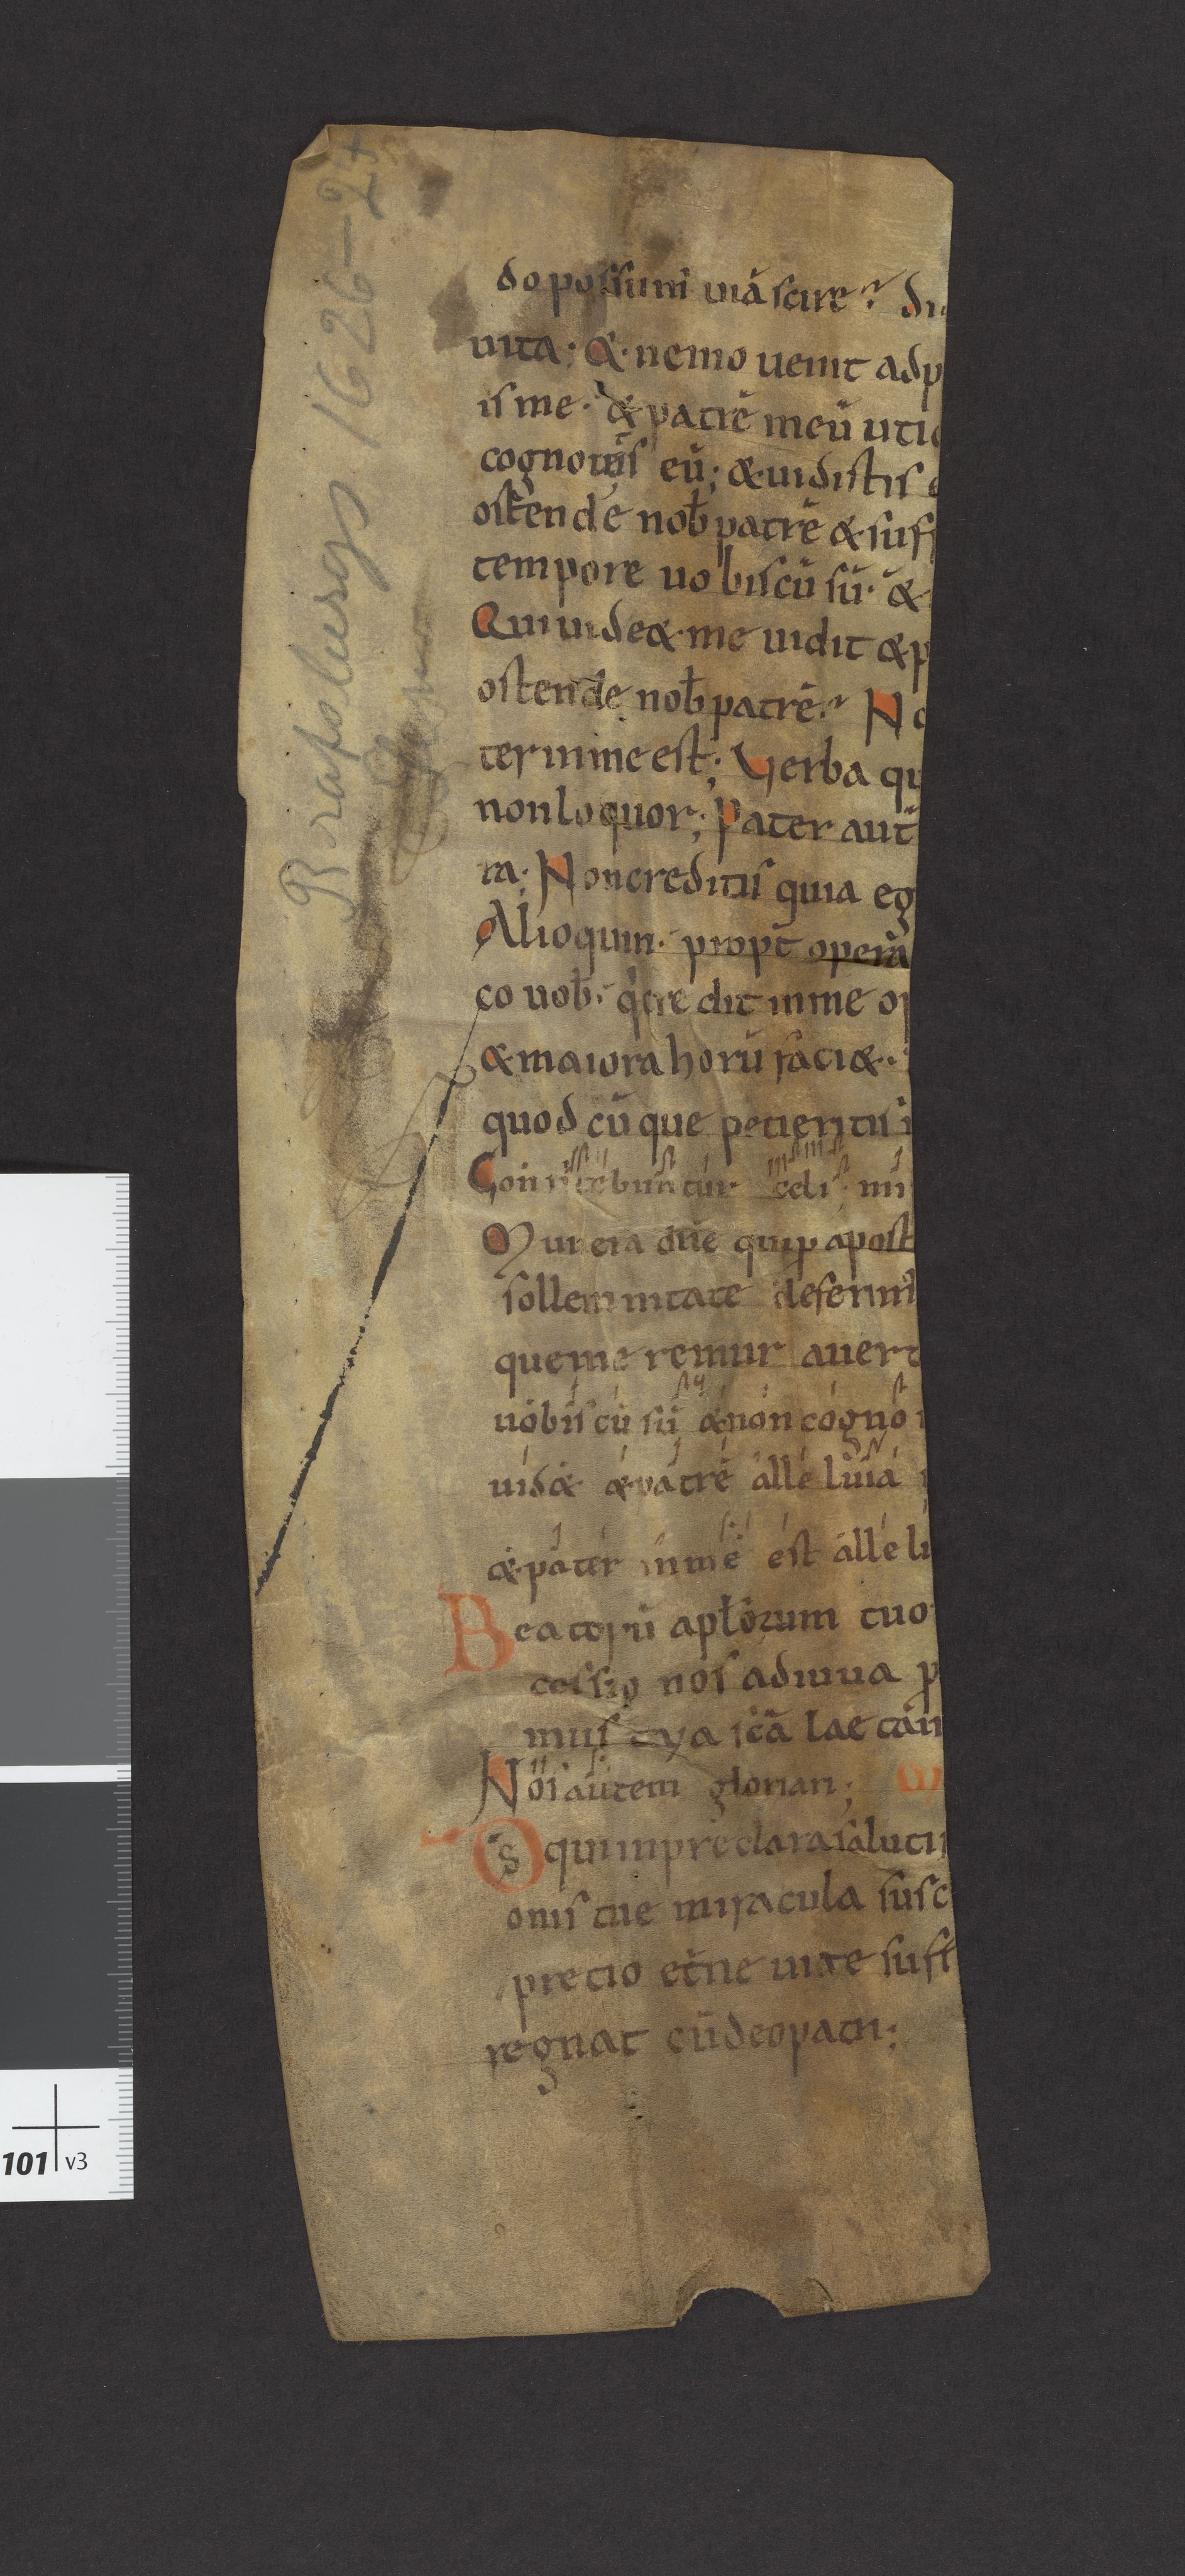 do possumˀ uiā scire? di
uita· & nemo uenit adp
is me· & patrē meū utiq
cognoscetis eū; & uidistis e
ostende nob̄ patrē & suf
tempore uobiscū sū· &
Qui uid& me uidit & p
ostende nob̄ patrē? No
ter in me est; Verba qu
non loquor; Pater aut̄
ra· Non creditis quia eg
Alioquin· propt̄ opera
co uob̄· q̇ credit in me op
& maiora horū faci&·
quodcūque petieritis i
Confitebuntur celi mi
Munera dn̄e que p̄ apost
sollemnitate deferim᾽
que meremur auert
uobiscū sū & non cogno
uid& & patrē alleluia
& pater in me est allelu
Beatorū apl̄orum tuo
cessio nos adiuua p
mus tua sc̄a laetan
Nos autem gloriari;
Ds̄ qui in preclara saluti
onis tue miracula susc
precio et̄ne uite suff
regnat cū deo patri;
Brapolusgs 1626-27
101 v3